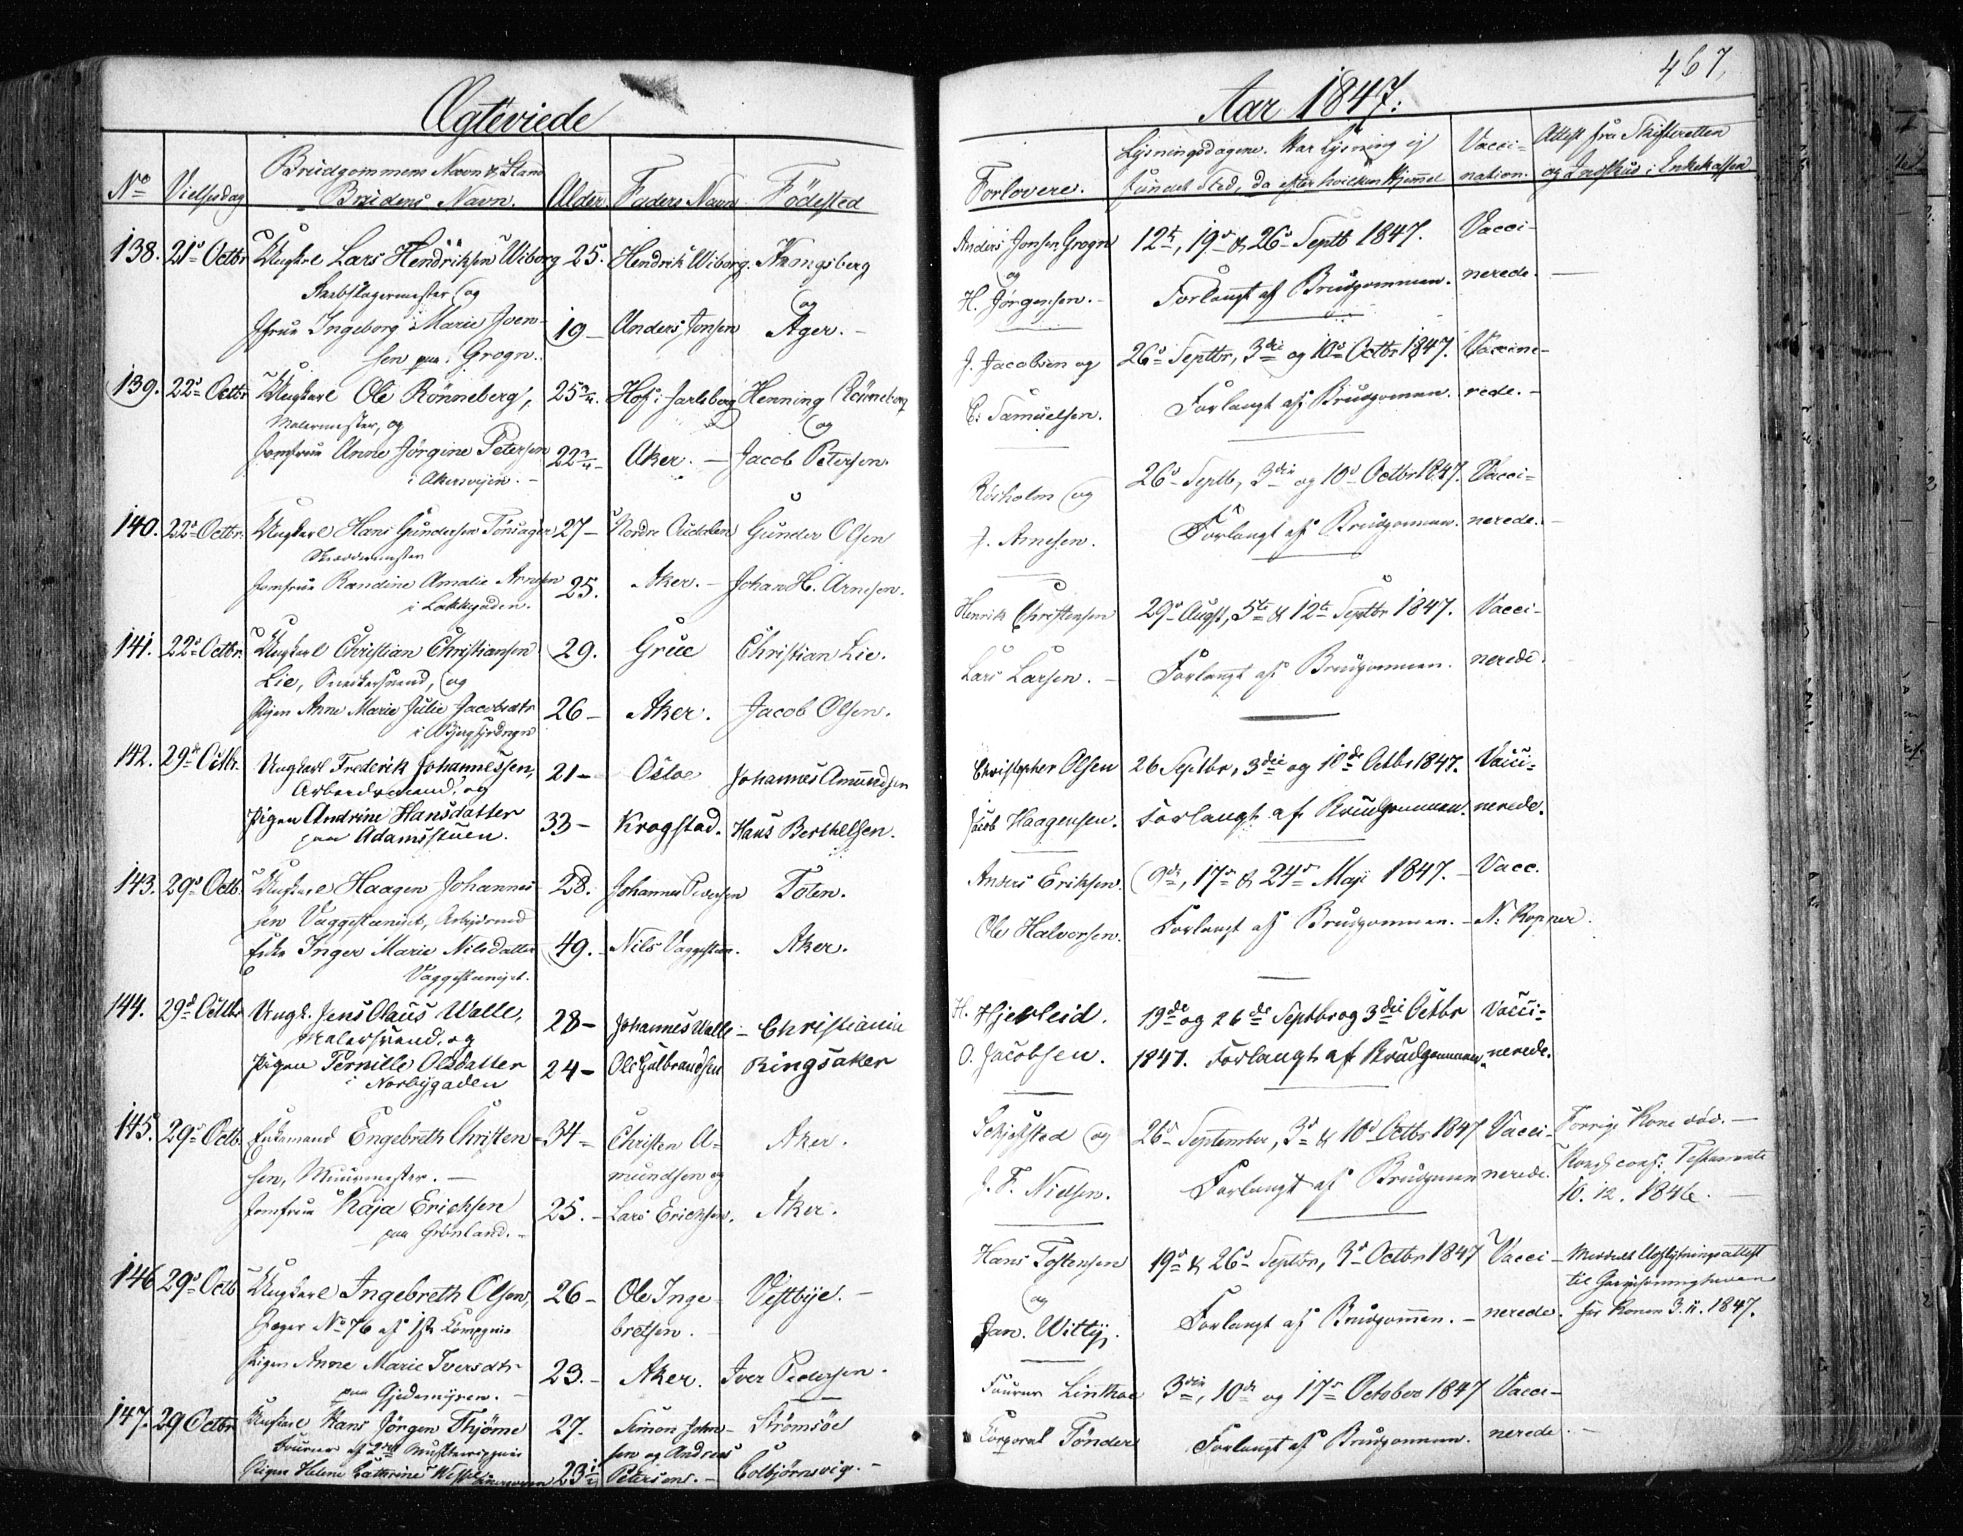 467.
Ægteviede
Aar 1847.
No
Vielsesdag
Brudgommens Navn & Stand
Brudens Navn.
Alder.
Faders Navn
Fødested
Forlovere.
Lysningsdagene. Har Lysning ej
fundet Sted, da efter hvilken Hjemmel
Vacci-
nation.
Attest fra Skifteretten
og Indskud i Enkekassen
138. 21de Octbr Ungkarl Lars Hendriksen Wiborg 25. Hendrik Wiborg. Kongsberg
og
Jfrue Ingeborg Marie Joen- 19 - Anders Jonsen Ager. -
sen paa Grogn.
Anders Jonsen Grogn 12te, 19de & 26de Septb 1847. Vacci-
og
H. Jørgensen. - Forlangt af Brudgommen. nerede. -
139. 22de Octbr Ungkarl Ole Rönneberg, 25 3/4. Hof i Jarlsberg Henning Rönneberg
Malermester, og
og
Jomfrue Anne Jörgine Petersen 22 3/4 - Aker. - Jacob Petersen.
i Akersveien. -
J. Jacobsen og 26de Septbr, 3die og 10de Octbr 1847. Vaccine-
C. Samuelsen. Forlangt af Brudgommen. rede. -
140. 22de Octbr. Ungkarl Hans Gundersen Tönsager 27 - Nordre Audalen Gunder Olsen
Jomfrue Randine Amalie Arnesen 25. Aker. - Johan H. Arnesen.
i Lakkegaden.
og 26de Septb, 3die og 10de Octbr 1847. Vacci-
J. Arnesen. Forlangt af Brudgommen. nerede. -
141. 22de Octbr. Ungkarl Christian Christiansen 29. Grue Christian Lie.
Lie, Snedkersvend, og
Pigen Anne Marie Julie Jacobsdtr 26 - Aker. Jacob Olsen.
Henrik Christensen 29de Augst, 5te & 12te Septbr 1847. Vacci-
Lars Larsen. - Forlangt af Brudgommen. nerede.
142. 29de Octbr. Ungkarl Frederik Johannessen, 21 - Osloe Johannes Amundsen
Arbeidsmand, og
Pigen Andrine Hansdatter 33 - Krogstad. Hans Berthelsen.
paa Adamsstuen.
Christopher Olsen 26 Septbr, 3die og 10de Octbr 1847. Vacci-
Jacob Haagensen. Forlangt af Brudgommen. nerede.
143. 29de Octb. Ungkarl Haagen Johannes- 28. Johannes Pedersen Toten.
sen Vaggesteneiet, Arbejdsmd
Enke Inger Marie Nilsdatter 49. - Nils Vaggesteen. Aker.
Vaggesteneiet.
Anders Eriksen. 9de, 17de & 24de Maji 1847. - Vacc.
Ole Halvorsen. Forlangt af Brudgommen. - N. Kopper.
144. 29de Octbr Ungk. Jens Olaus Walle, 28 - Johannes Walle - Christiania
Malersvend, og
Pigen Pernille Olsdatter 24 - Ole Gulbrandsen Ringsaker
i Norbygaden
H. Hjerleid. 19de og 26de Septbr og 3die Octbr Vacci-
O. Jacobsen. 1847. Forlangt af Brudgommen. nerede.
145. 29de Octb. Enkemand Engebreth Christen- 34 - Christen A- Aker.
sen, Muurmester. - mundsen og
Jomfrue Kaja Erichsen 25. - Lars Erichsen. Aker.
paa Grönland. -
og 26de September, 3de & 10de Octbr 1847 Vacci- Forrige Kone död. -
J. F. Nielsen. Forlangt af Brudgommen nerede. Testamente
10. 12. 1846. -
146 29de Octb Ungkarl Ingebreth Olsen, 26 - Ole Inge- Vestbye. -
Jæger No 76 af 1ste Compagnie bretsen. -
Pigen Anne Marie Iversdtr 23. - Aker. Iver Pedersen. -
paa Gjedemyren. -
Hans Tostensen 19de & 26de Septbr, 3de Octbr 1847 Vacci-
og
Jan. Wittij. Forlangt af Brudgommen. - nerede. for Konen 3. 11. 1847.
147. 29 Octbr Ungkarl Hans Jörgen Thjöme 27. Simon John- Strömsöe
sen og Andreas
Pigen Helene Cathrine 23 1/2 Petersen. - Colbjörnsvig. -
Fourer Linthoe 3die, 10de og 17de October 1847 Vacci-
Corporal Tönder Forlangt af Brudgommen. nerede. -